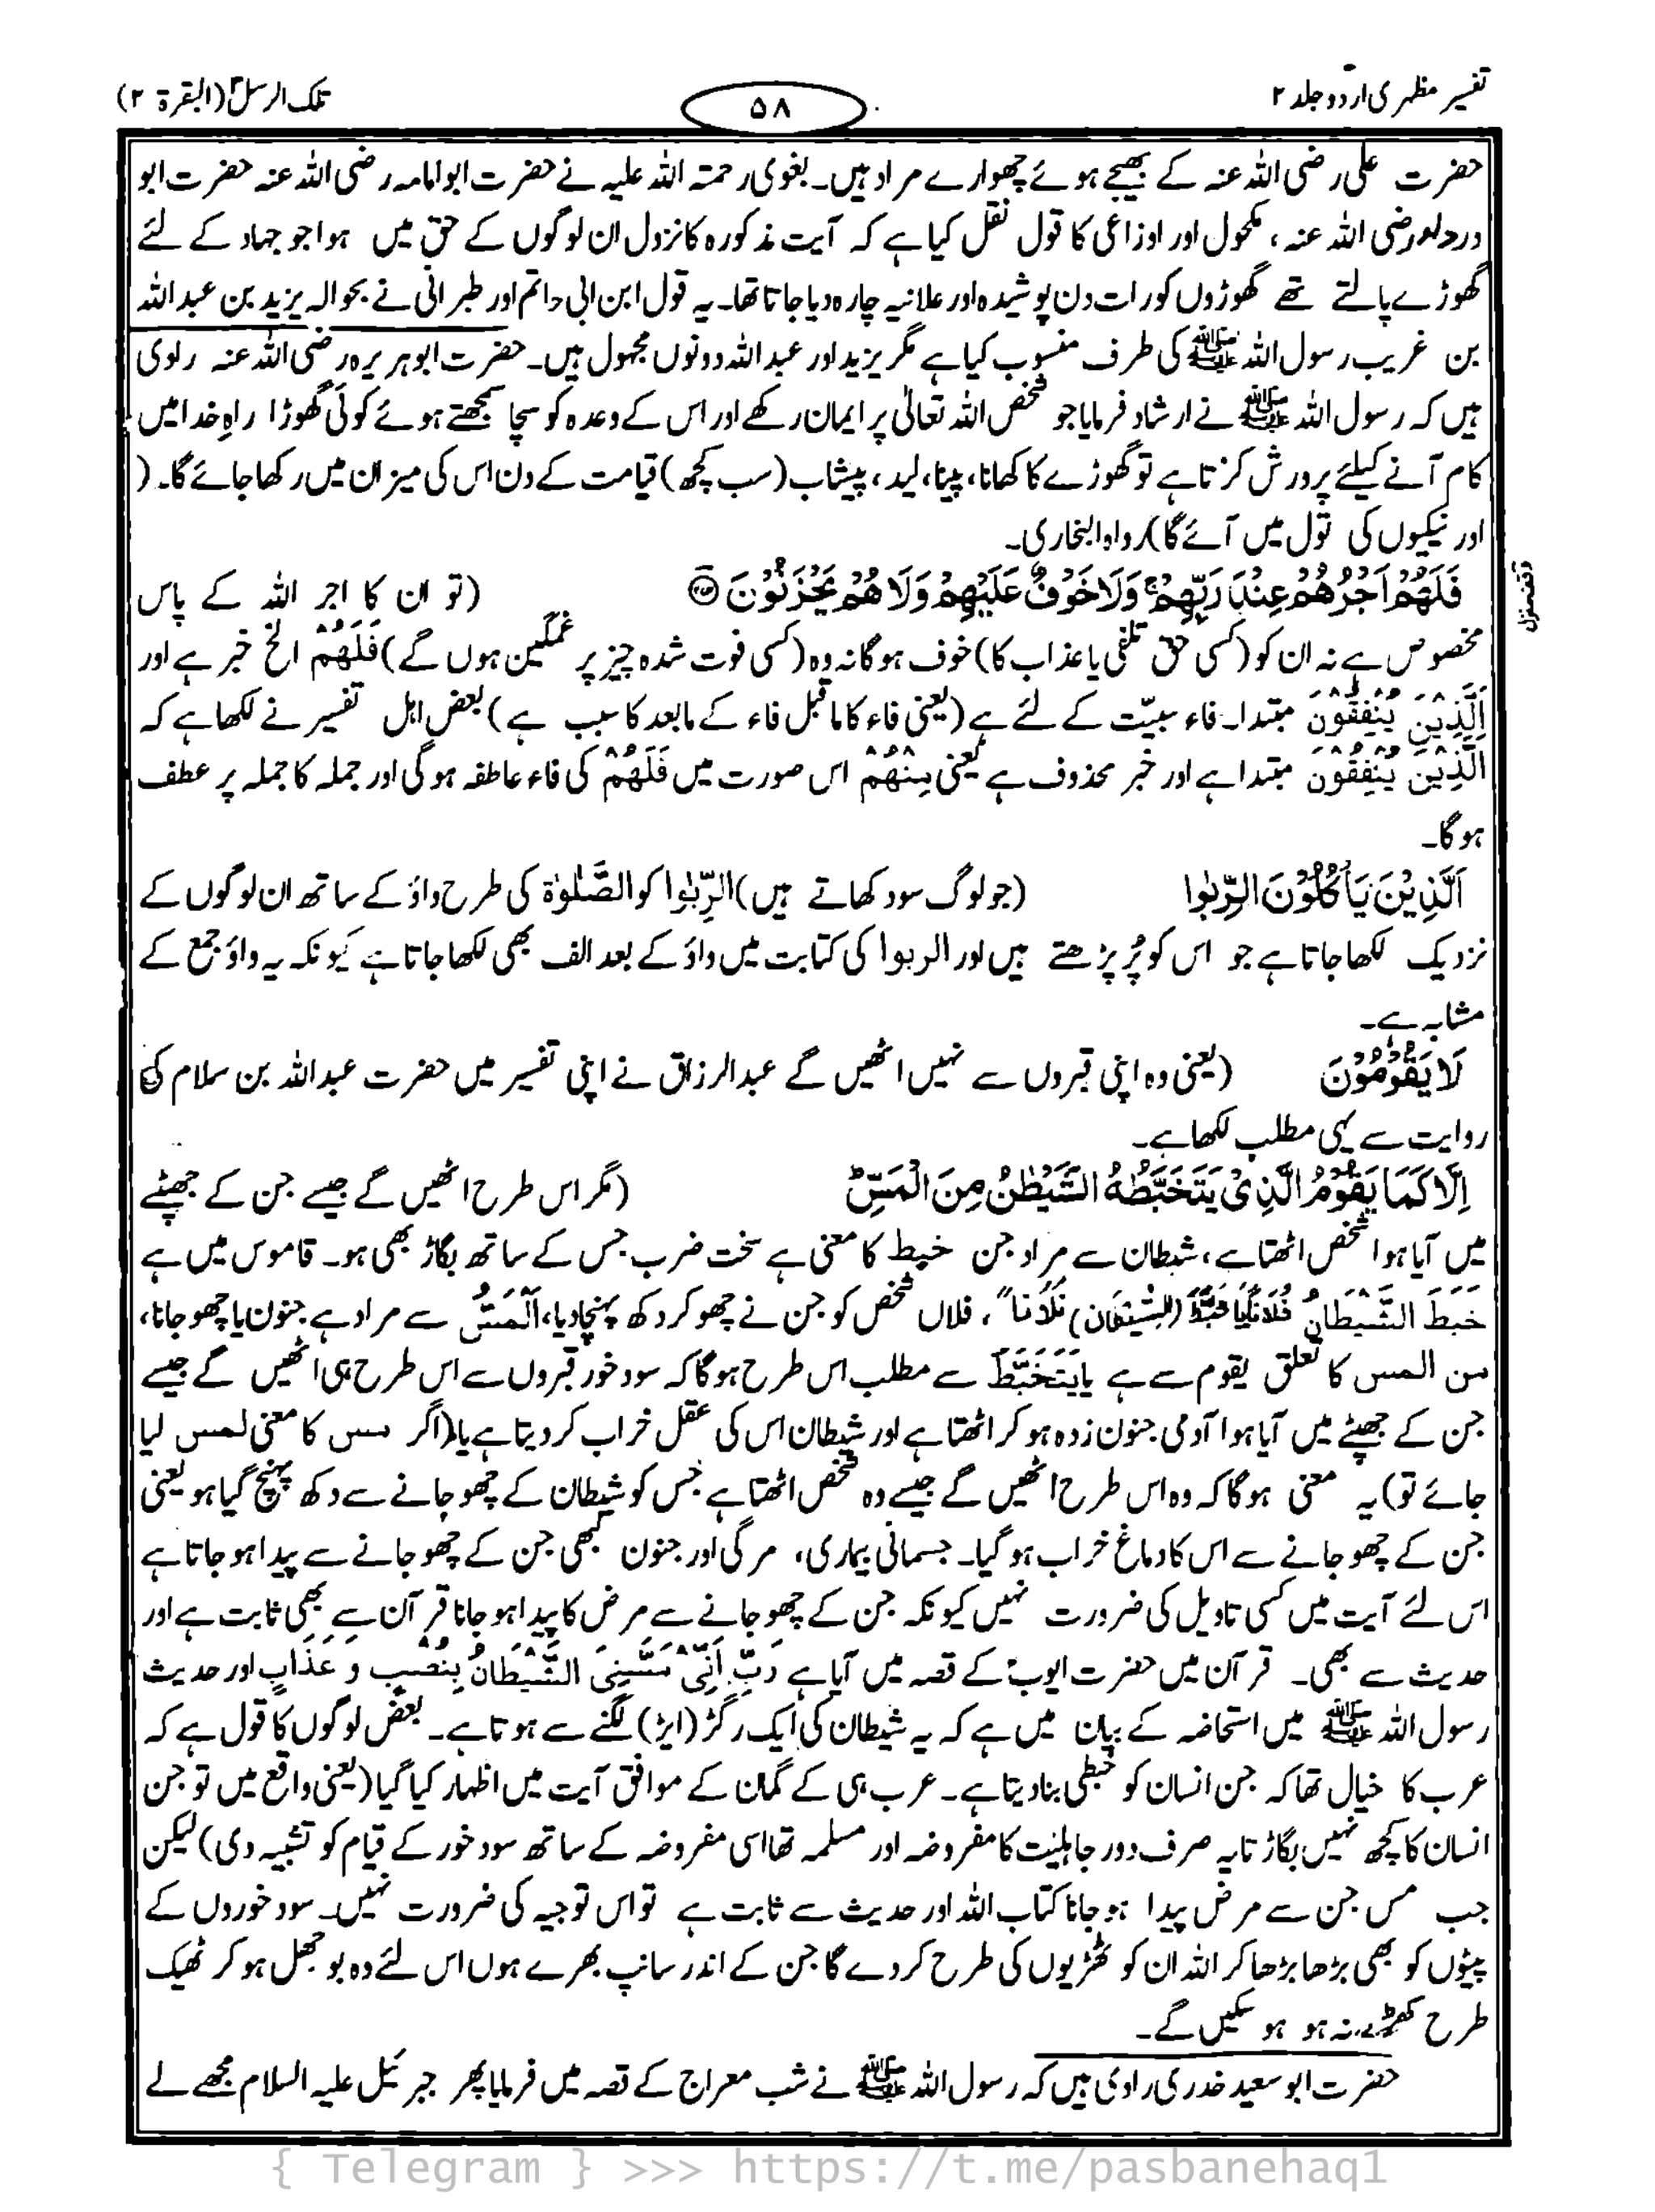 تفسیر مظہری اردو جلد ۲
۵۸
تلک الرسل (البقرۃ ۲)
حضرت علی رضی اللہ عنہ کے بھیجے ہوئے چھوارے مراد ہیں۔ بغوی رحمتہ اللہ علیہ نے حضرت ابوامامہ رضی اللہ عنہ حضرت ابو
درداء رضی اللہ عنہ، مکحول اور اوزاعی کا قول نقل کیا ہے کہ آیت مذکورہ کا نزول ان لوگوں کے حق میں ہوا جو جہاد کے لئے
گھوڑے پالتے تھے گھوڑوں کو رات دن پوشیدہ اور علانیہ چارہ دیا جاتا تھا۔ یہ قول ابن ابی حاتم اور طبرانی نے بحوالہ یزید بن عبداللہ
بن غریب رسول اللہ ﷺ کی طرف منسوب کیا ہے مگر یزید اور عبداللہ دونوں مجہول ہیں۔ حضرت ابوہریرہ رضی اللہ عنہ راوی
ہیں کہ رسول اللہ ﷺ نے ارشاد فرمایا جو شخص اللہ تعالیٰ پر ایمان رکھے اور اس کے وعدہ کو سچا سمجھتے ہوئے کوئی گھوڑا راہِ خدا میں
کام آنے کیلئے پرورش کرتا ہے تو گھوڑے کا کھانا، پینا، لید، پیشاب (سب کچھ) قیامت کے دن اس کی میزان میں رکھا جائے گا۔ (
اور نیکیوں کی تول میں آئے گا) رواہ البخاری۔
فَلَهُمْ اَجْرُهُمْ عِنْدَ رَبِّهِمْ ۚ وَلَا خَوْفٌ عَلَيْهِمْ وَلَا هُمْ يَحْزَنُوْنَ ۝ (تو ان کا اجر اللہ کے پاس
مخصوص ہے نہ ان کو (کسی حق تلفی یا عذاب کا) خوف ہوگا نہ وہ (کسی فوت شدہ چیز پر غمگین ہوں گے) فَلَهُمْ الخ خبر ہے اور
اَلَّذِيْنَ يُنْفِقُوْنَ مبتدا۔ فاء سببیّت کے لئے ہے (یعنی فاء کا ماقبل فاء کے مابعد کا سبب ہے) بعض اہل تفسیر نے لکھا ہے کہ
اَلَّذِيْنَ يُنْفِقُوْنَ مبتدا ہے اور خبر محذوف ہے یعنی مِنْهُمْ اس صورت میں فَلَهُمْ کی فاء عاطفہ ہوگی اور جملہ کا جملہ پر عطف
ہوگا۔
اَلَّذِيْنَ يَاْكُلُوْنَ الرِّبٰوا (جو لوگ سود کھاتے ہیں) الرِّبٰوا کو الصَّلٰوۃ کی طرح واؤ کے ساتھ ان لوگوں کے
نزدیک لکھا جاتا ہے جو اس کو پُر پڑھتے ہیں اور الربوا کی کتابت میں واؤ کے بعد الف بھی لکھا جاتا ہے کیونکہ یہ واؤ جمع کے
مشابہ ہے۔
لَا يَقُوْمُوْنَ (یعنی وہ اپنی قبروں سے نہیں اٹھیں گے عبدالرزاق نے اپنی تفسیر میں حضرت عبداللہ بن سلام کی
روایت سے یہی مطلب لکھا ہے۔
اِلَّا كَمَا يَقُوْمُ الَّذِيْ يَتَخَبَّطُهُ الشَّيْطٰنُ مِنَ الْمَسِّ ؕ (مگر اس طرح اٹھیں گے جیسے جن کے جھپٹے
میں آیا ہوا شخص اٹھتا ہے، شیطان سے مراد جن خبط کا معنی ہے سخت ضرب جس کے ساتھ بگاڑ بھی ہو۔ قاموس میں ہے
خَبَطَ الشَّيْطَانُ فُلَانًا فلاں شخص کو جن نے چھو کر دکھ پہنچا دیا، اَلْمَسُّ سے مراد ہے جنون یا چھو جانا،
من المس کا تعلق یقوم سے ہے یا يَتَخَبَّطُ سے مطلب اس طرح ہوگا کہ سود خور قبروں سے اس طرح ہی اٹھیں گے جیسے
جن کے جھپٹے میں آیا ہوا آدمی جنون زدہ ہو کر اٹھتا ہے اور شیطان اس کی عقل خراب کر دیتا ہے یا (اگر مس کا معنی لمس لیا
جائے تو) یہ معنی ہوگا کہ وہ اس طرح اٹھیں گے جیسے وہ شخص اٹھتا ہے جس کو شیطان کے چھو جانے سے دکھ پہنچ گیا ہو یعنی
جن کے چھو جانے سے اس کا دماغ خراب ہو گیا۔ جسمانی بیماری، مرگی اور جنون کبھی جن کے چھو جانے سے پیدا ہو جاتا ہے
اس لئے آیت میں کسی تاویل کی ضرورت نہیں کیونکہ جن کے چھو جانے سے مرض کا پیدا ہو جانا قرآن سے بھی ثابت ہے اور
حدیث سے بھی۔ قرآن میں حضرت ایوبؑ کے قصہ میں آیا ہے رَبِّ اَنِّيْ مَسَّنِيَ الشَّيْطَانُ بِنُصْبٍ وَ عَذَابٍ اور حدیث
رسول اللہ ﷺ میں استحاضہ کے بیان میں ہے کہ یہ شیطان کی ایک رگڑ (ایڑ) لگنے سے ہوتا ہے۔ بعض لوگوں کا قول ہے کہ
عرب کا خیال تھا کہ جن انسان کو خبطی بنا دیتا ہے۔ عرب ہی کے گمان کے موافق آیت میں اظہار کیا گیا (یعنی واقع میں تو جن
انسان کا کچھ نہیں بگاڑتا یہ صرف دور جاہلیت کا مفروضہ اور مسلمہ تھا اسی مفروضہ کے ساتھ سود خور کے قیام کو تشبیہ دی) لیکن
جب مس جن سے مرض پیدا ہو جانا کتاب اللہ اور حدیث سے ثابت ہے تو اس توجیہ کی ضرورت نہیں۔ سود خوروں کے
پیٹوں کو بھی بڑھا بڑھا کر اللہ ان کو کٹھڑیوں کی طرح کر دے گا جن کے اندر سانپ بھرے ہوں اس لئے وہ بوجھل ہو کر ٹھیک
طرح کھڑے نہ ہو ہو سکیں گے۔
حضرت ابوسعید خدری راوی ہیں کہ رسول اللہ ﷺ نے شب معراج کے قصہ میں فرمایا پھر جبرئیل علیہ السلام مجھے لے
{ Telegram } >>> https://t.me/pasbanehaq1